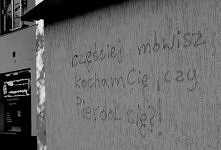 częściej mówisz
kocham Cię, czy
Pierdol się?!